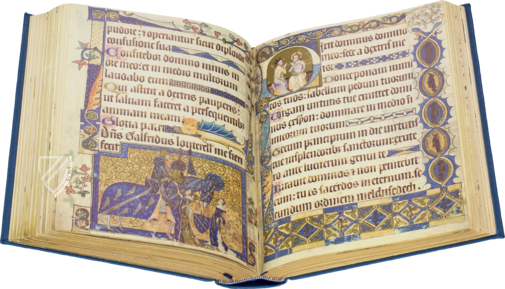 pudore: et operiantur sicut diploide
confusione sua
Confitebor domino nimis in
ore meo: et in medio multorum
laudabo eum
Qui astitit a dextris pauperis:
ut salvam faceret a persequentibus
Gloria patri
Dns Galfridus louterell me fieri
fecit
Dixit dominus domino
meo: sede a dextris
meis
Donec ponam inimicos
tuos: scabellum pedum tuorum
Virgam virtutis tue emittet domi
nus ex syon: dominare in medio
inimicorum tuorum
Tecum principium in die virtutis
tue in splendoribus sanctorum: ex utero
ante luciferum genui te
Iuravit dominus et non penitebit
eum: tu es sacerdos in eternum se
cundum ordinem melchisedech